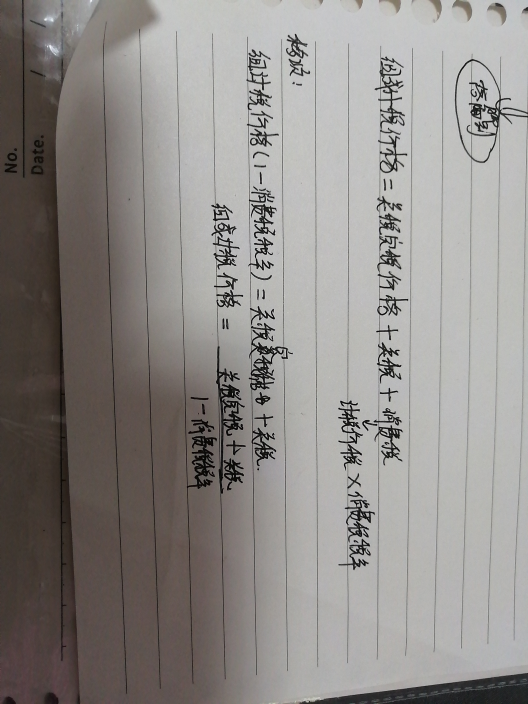 组成计税价格 = 关税完税价格 + 关税 + 消费税
计税价格 × 消费税税率
移项:
组计税价格(1-消费税税率) = 关税完税价格 + 关税.
组成计税价格 = 关税完税 + 关税
1-消费税税率
No.
Date. / /